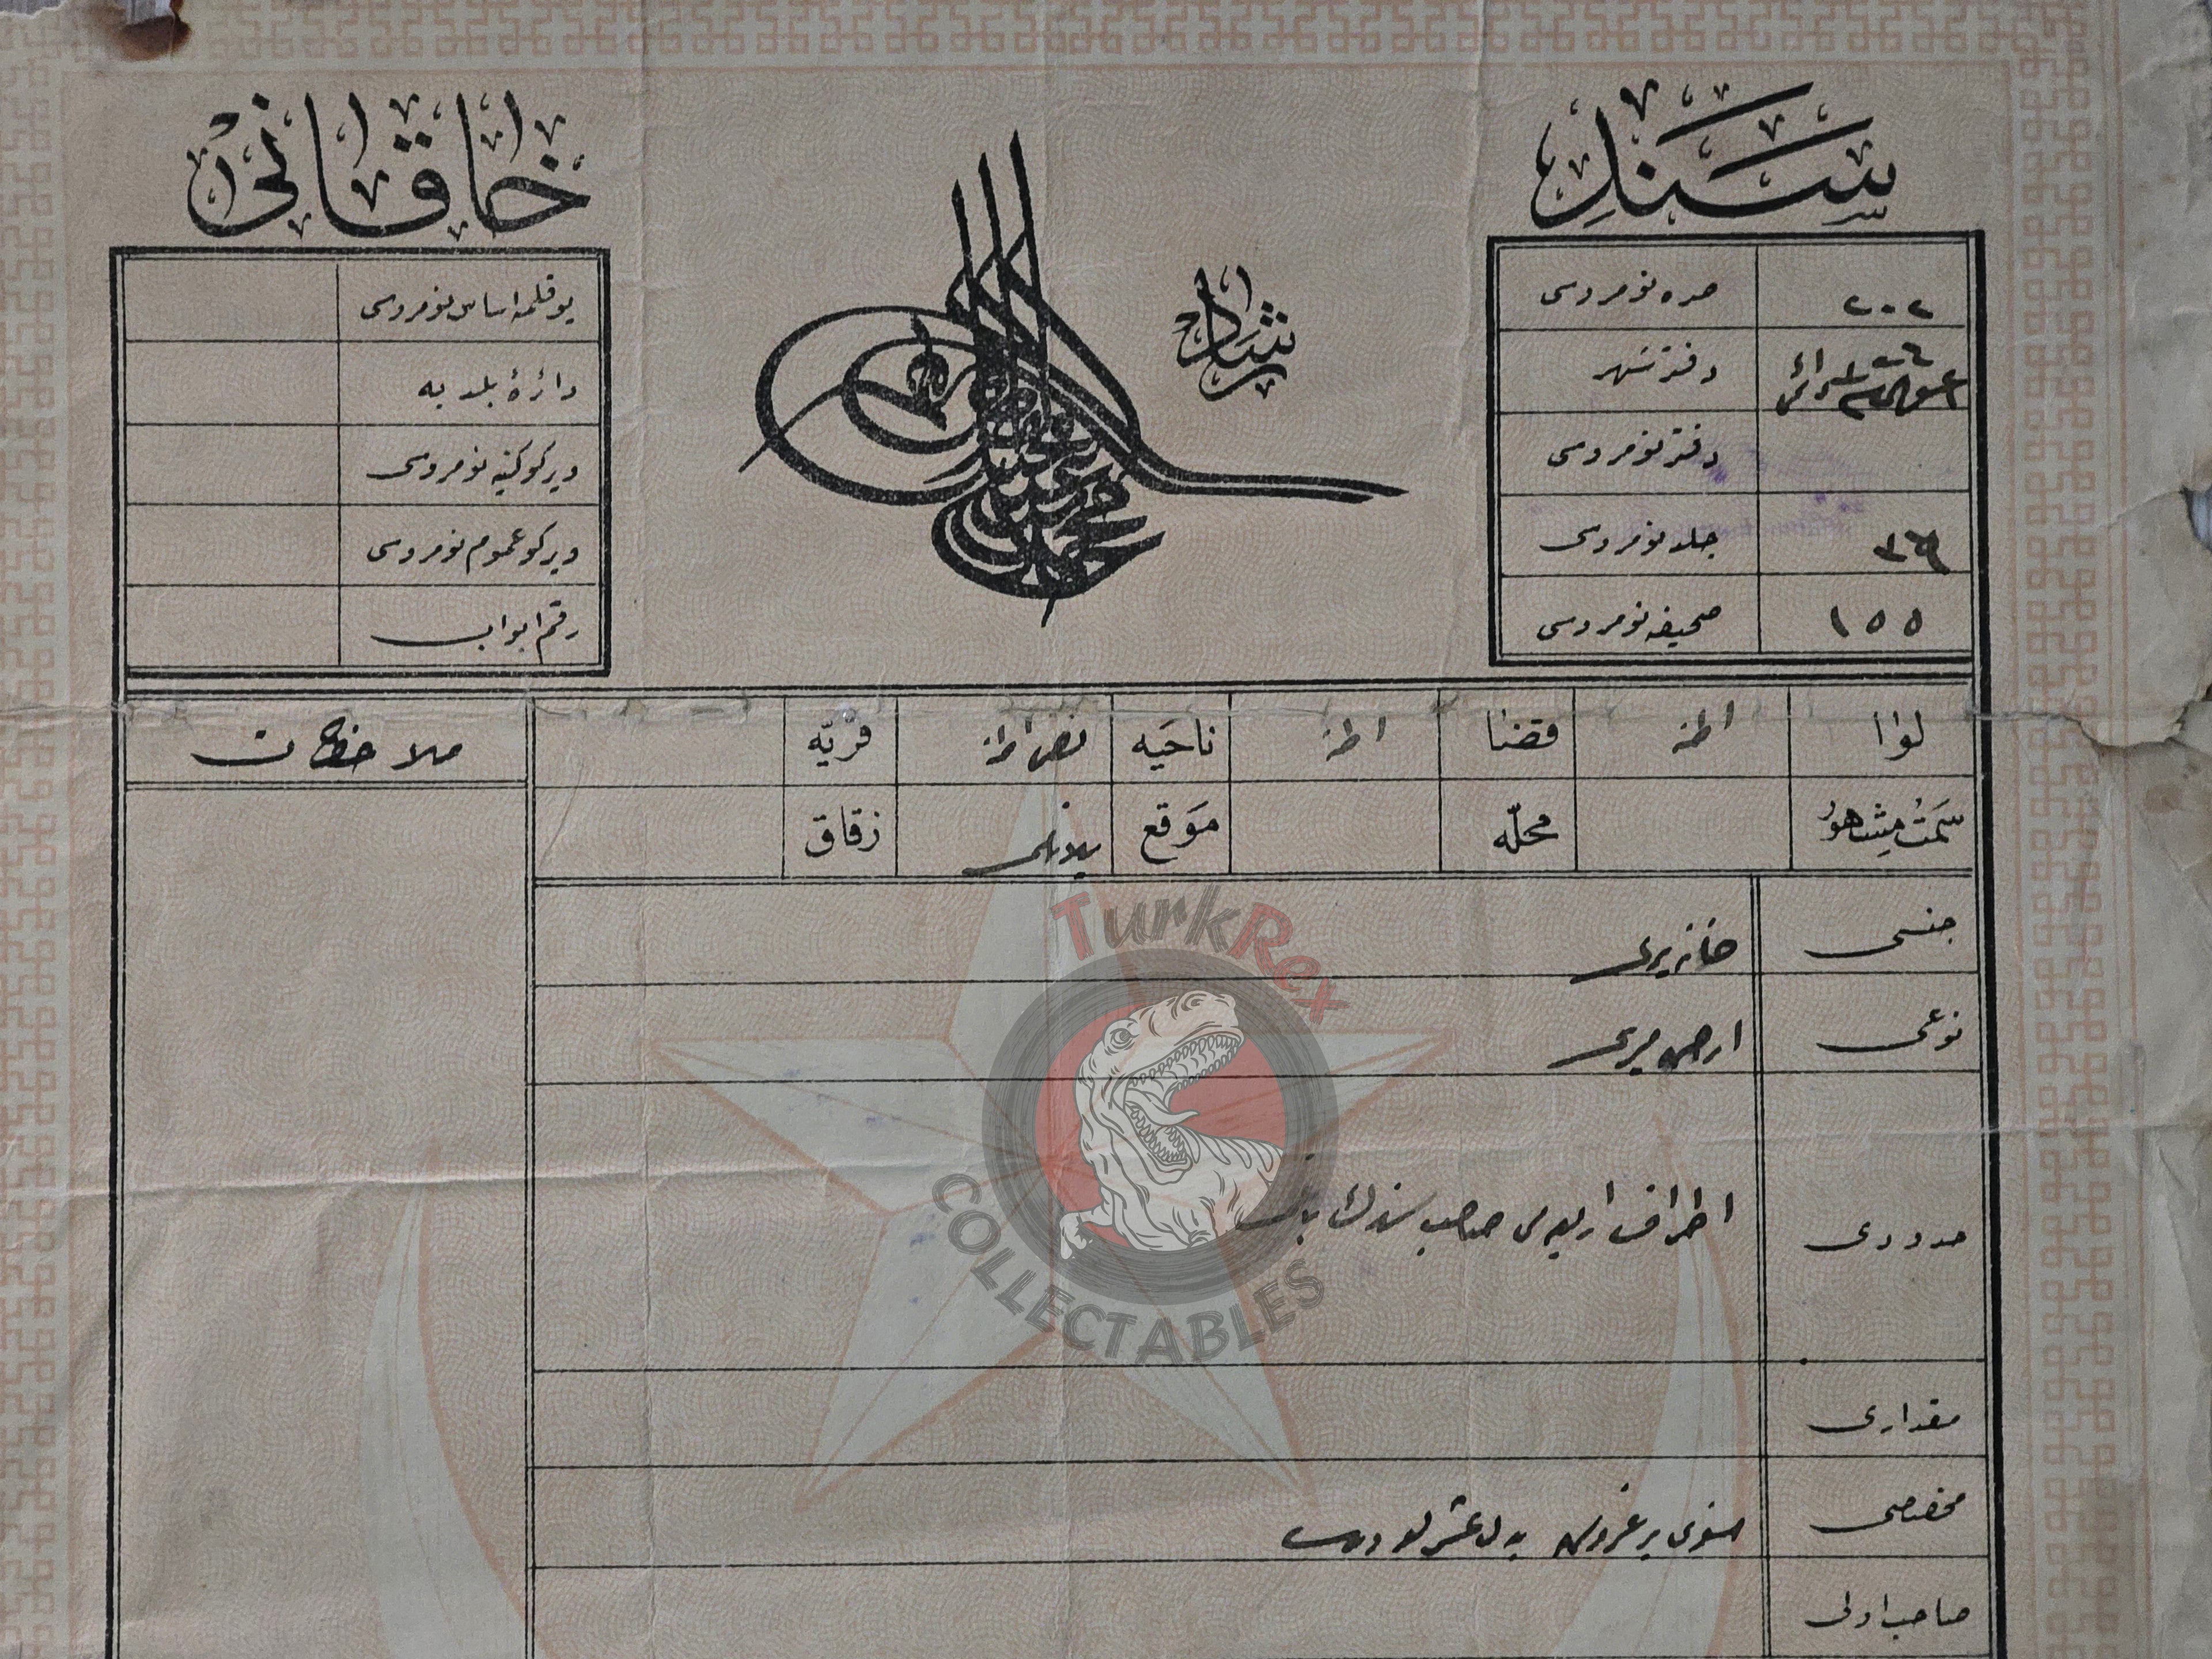 سند خاقانی
رشاد
صره نومروسی ٢٠٢
دفتر شهر
دفتر نومروسی
جلد نومروسی
صحیفه نومروسی ١٥٥
یوقلمه اساس نومروسی
دائرهٔ بلدیه
ویركو كتبه نومروسی
ویركو عموم نومروسی
رقم ابواب
لوا اطنه قضا اطنه ناحیه نفس اطنه قریه
ملاحظات
سمت مشاهور محله موقع زقاق
جنسی خانه یری
نوعی ارض میری
حدودی اطراف اربعه سی صاحب سندك
مقداری
مخصصی سنوی بر غروش بدل عشر
صاحب اولی
TurkRex
COLLECTABLES